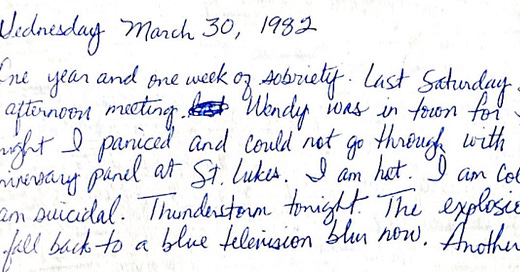 Wednesday March 30, 1982
One year and one week of sobriety. Last Saturday
afternoon meeting. Wendy was in town for
night I paniced and could not go through with
anniversary panel at St. Lukes. I am hot. I am col
am suicidal. Thunderstorm tonight. The explosio
fall back to a blue television blur now. Another